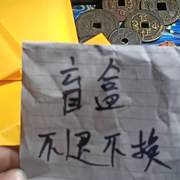 盲盒
不退不换